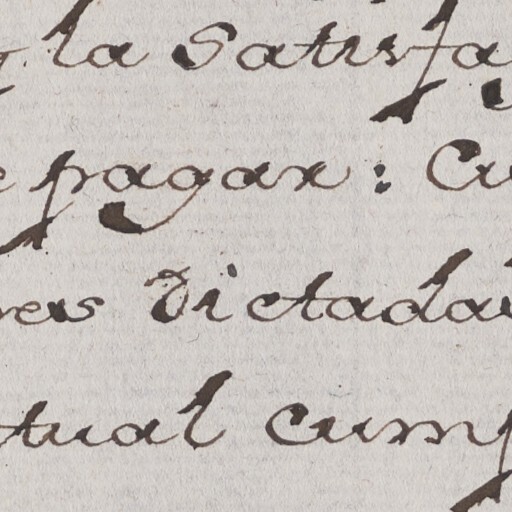 la Satisfa
pagar: Cu
res Dictada
tual cump